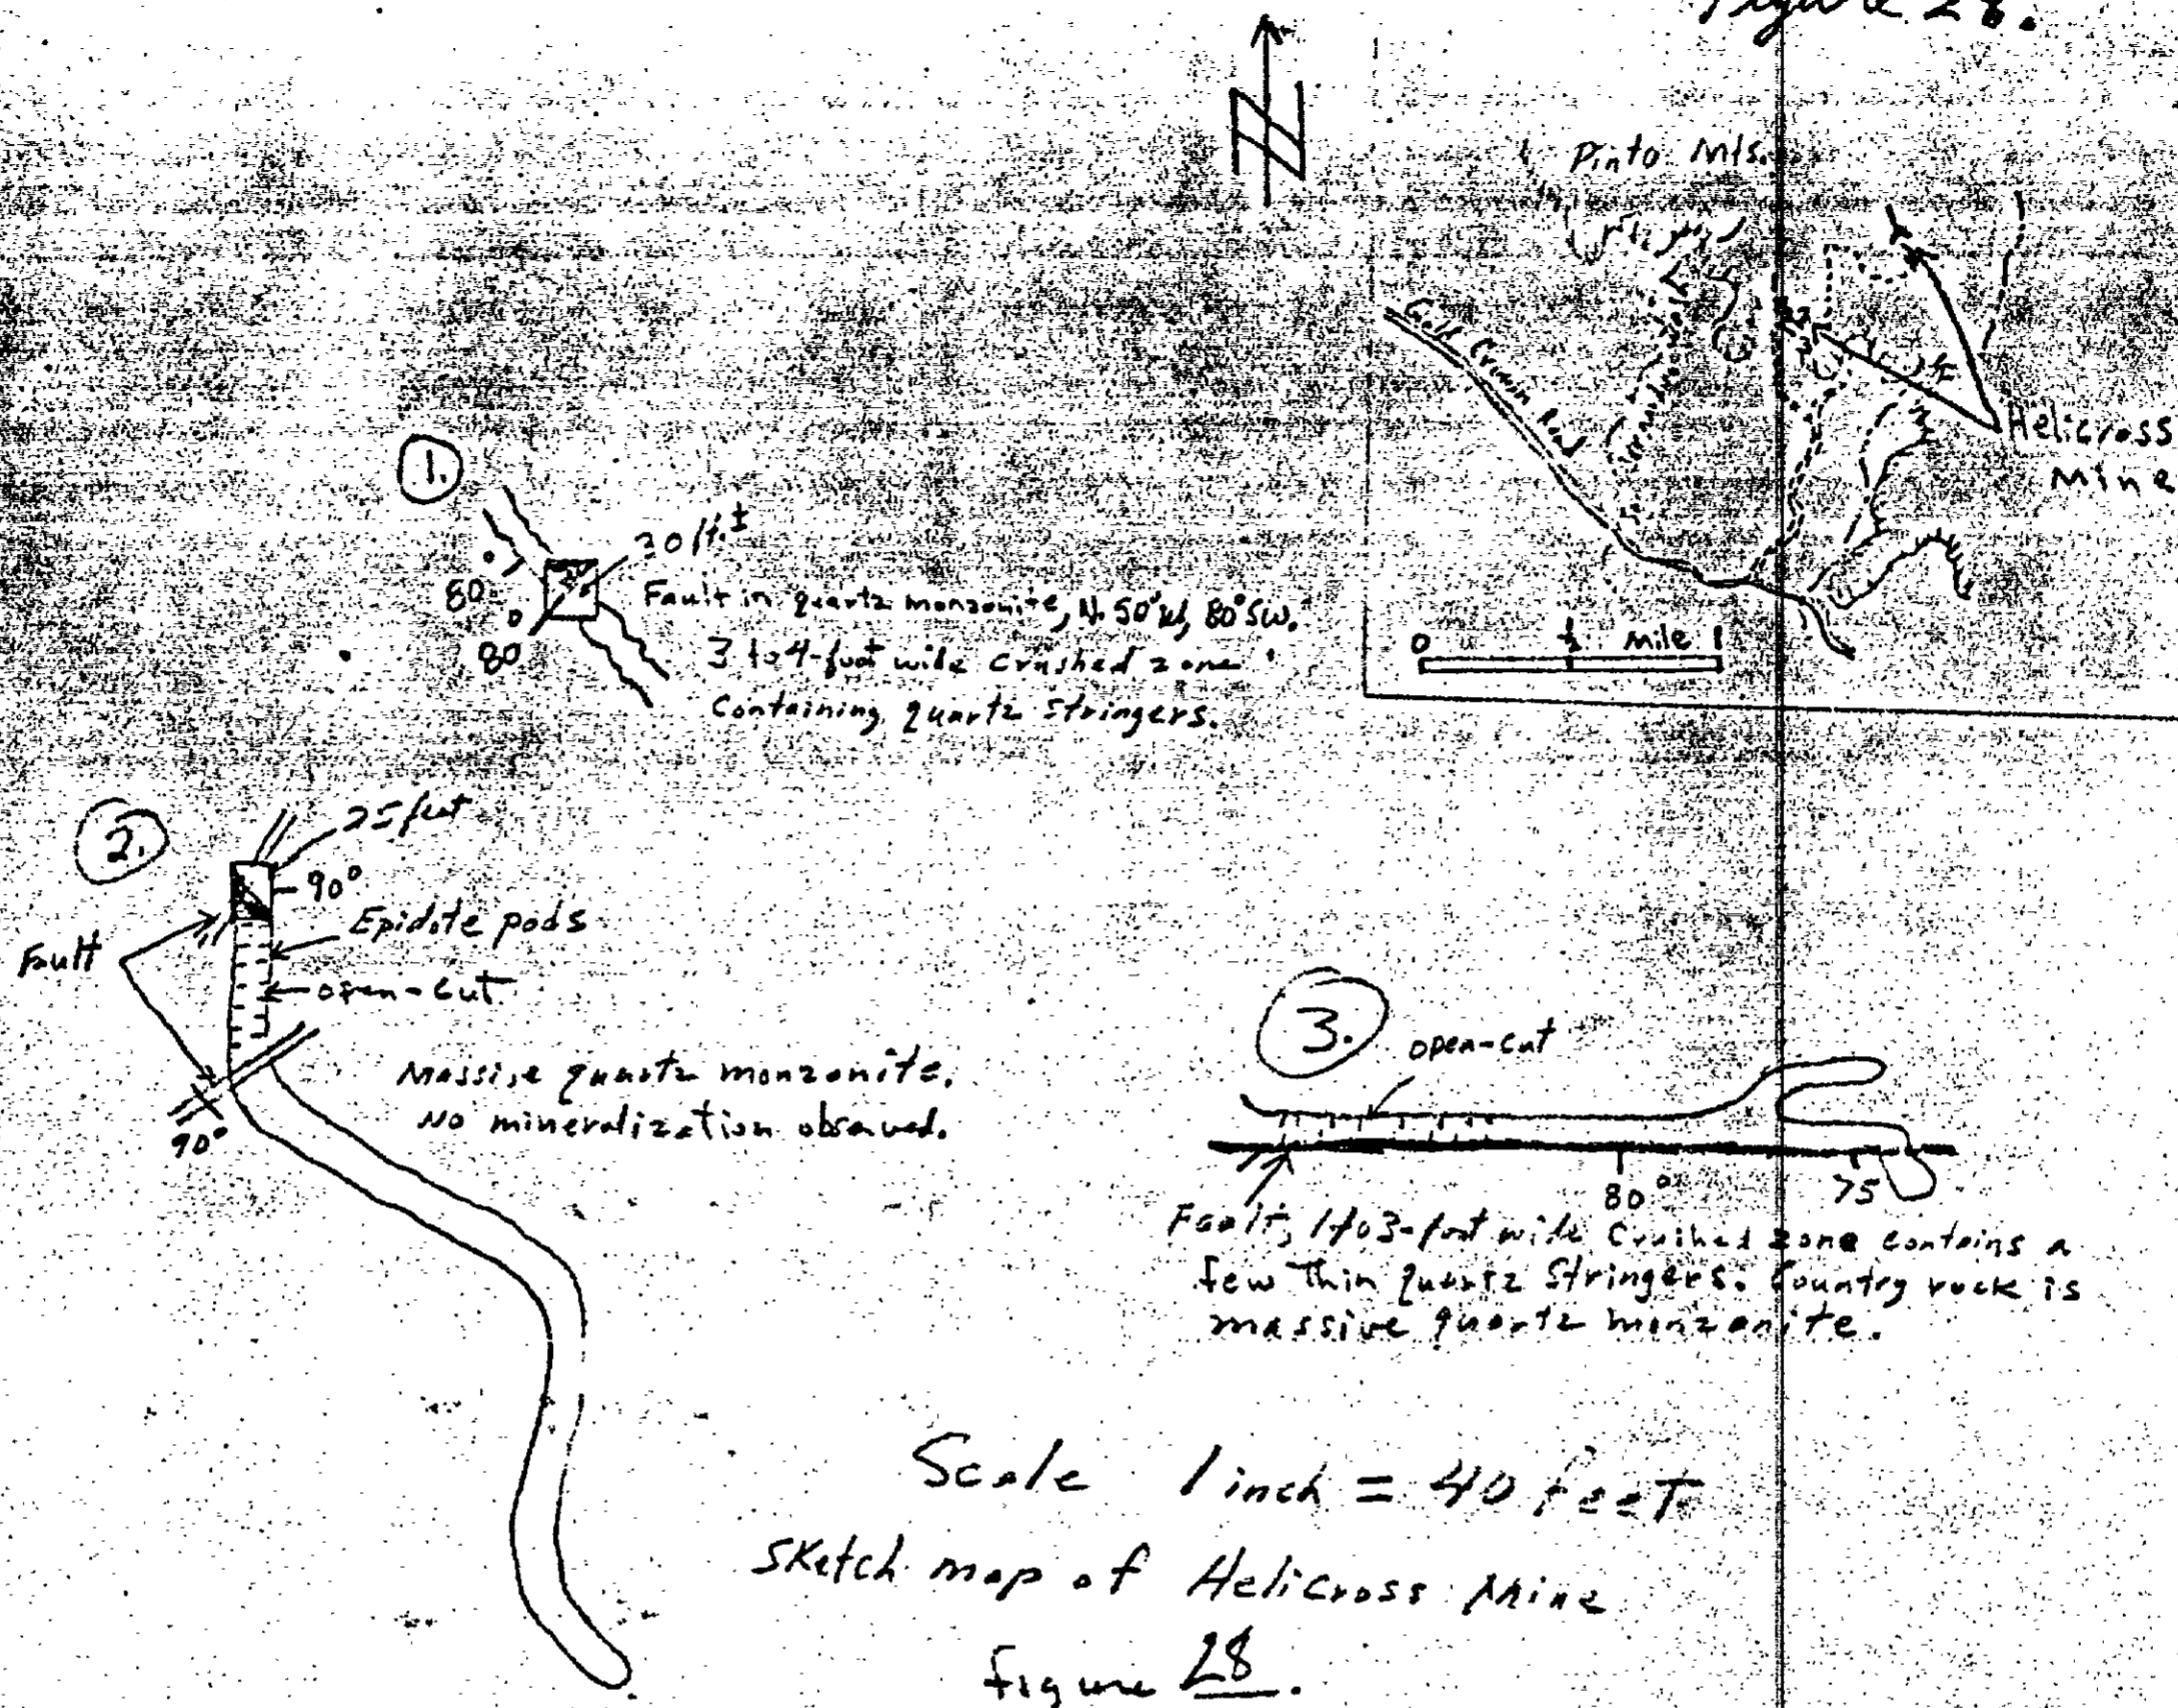 Figure 28.
N
Pinto Mts.
Gold Crown Road
Helicross
Mine
0 ½ mile 1
1.
30 ft.±
80
80
Fault in quartz monzonite, N. 50°W, 80°SW.
3 to 4-foot wide crushed zone
Containing quartz stringers.
2.
25 feet
90°
Epidote pods
Fault
open-cut
Massive quartz monzonite.
No mineralization observed.
90°
3.
open-cut
80°
75
Fault, 1 to 3-foot wide Crushed zone contains a
few Thin quartz Stringers. Country rock is
massive quartz monzonite.
Scale 1 inch = 40 feet
Sketch map of Helicross Mine
figure 28.